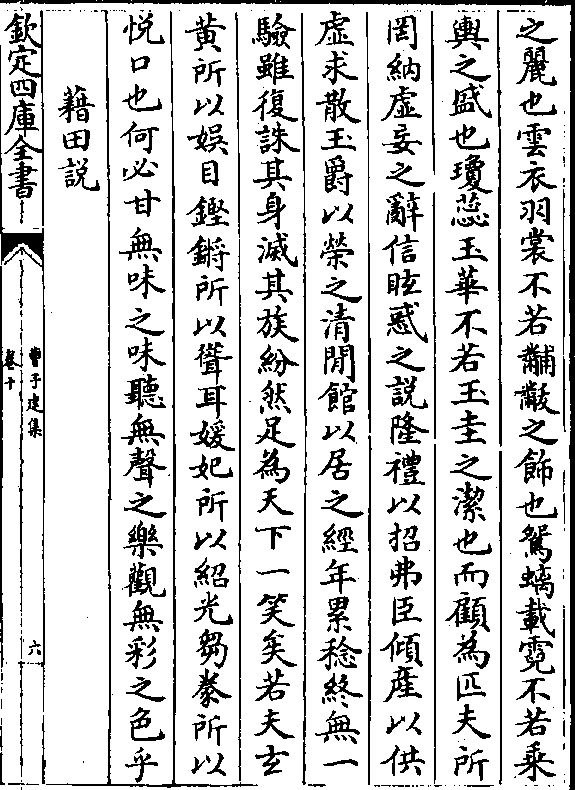 之麗也雲衣羽裳不若黼黻之飾也駕螭載霓不若乘
輿之盛也瓊蕊玉華不若玉圭之潔也而顧為匹夫所
罔納虛妄之辭信眩惑之說隆禮以招弗臣傾産以供
虛求散玉爵以榮之清閒館以居之經年累稔終無一
驗雖復誅其身滅其族紛然足為天下一笑矣若夫玄
黄所以娛目鏗鏘所以聳耳媛妃所以紹光芻豢所以
悦口也何必甘無味之味聽無聲之樂觀無彩之色乎
藉田説
欽定四庫全書
曹子建集
卷十
六